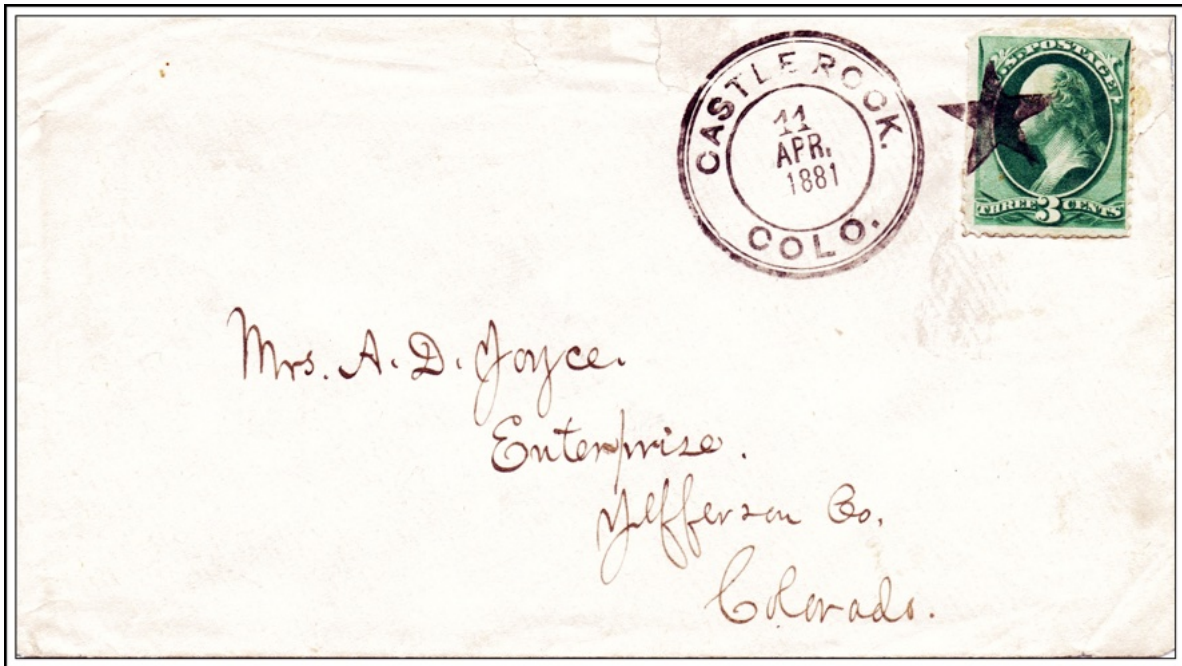 CASTLE ROCK.
11
APR.
1881
COLO.
U.S. POSTAGE
THREE 3 CENTS
Mrs. A. D. Joyce.
Enterprise.
Jefferson Co.
Colorado.